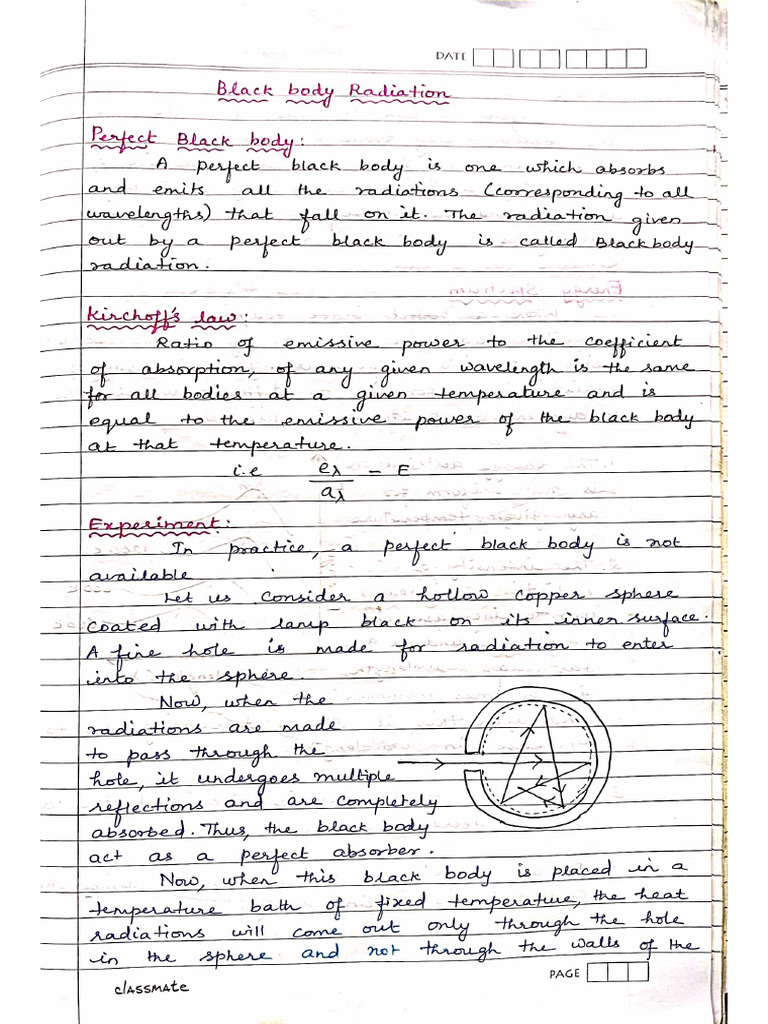 DATE
Black body Radiation
Perfect Black body:
A perfect black body is one which absorbs
and emits all the radiations (corresponding to all
wavelengths) that fall on it. The radiation given
out by a perfect black body is called Black body
radiation.
Kirchoff's law:
Ratio of emissive power to the coefficient
of absorption, of any given wavelength is the same
for all bodies at a given temperature and is
equal to the emissive power of the black body
at that temperature.
i.e eλ/aλ = E
Experiment:
In practice, a perfect black body is not
available
Let us consider a hollow copper sphere
coated with lamp black on its inner surface.
A fine hole is made for radiation to enter
into the sphere.
Now, when the
radiations are made
to pass through the
hole, it undergoes multiple
reflections and are completely
absorbed. Thus, the black body
act as a perfect absorber.
Now, when this black body is placed in a
temperature bath of fixed temperature, the heat
radiations will come out only through the hole
in the sphere and not through the walls of the
PAGE
classmate